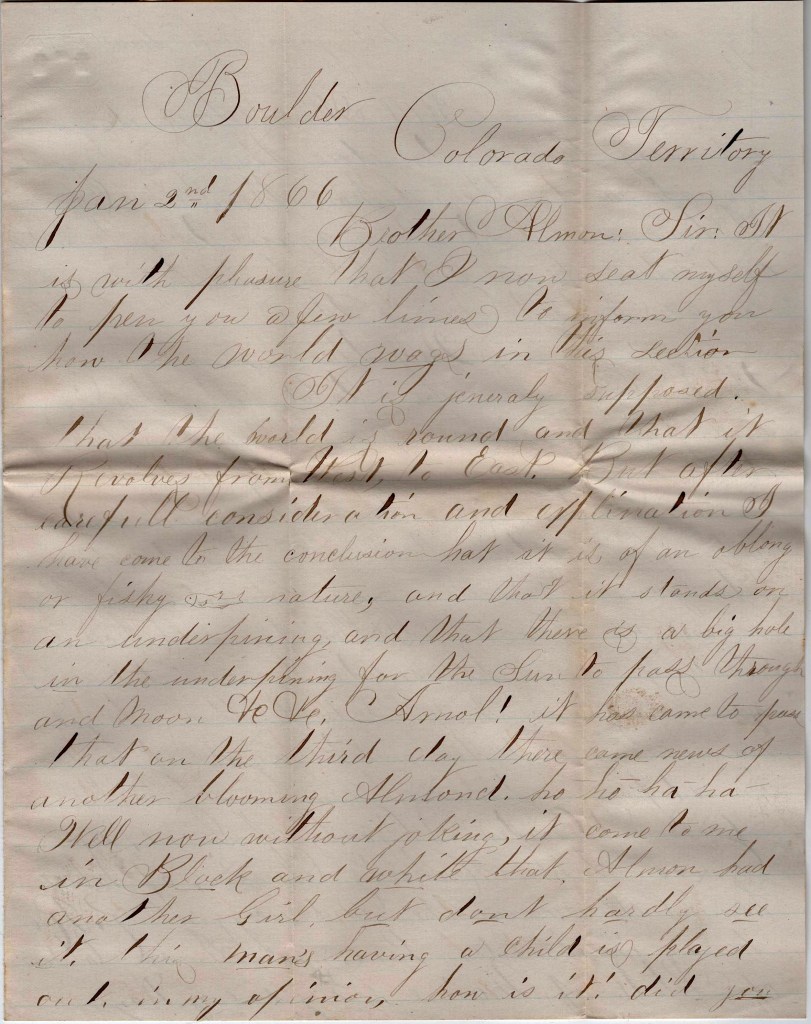 Boulder
Colorado Territory
Jan 2nd 1866
Brother Almon! Sir: It
is with pleasure that I now seat myself
to pen you a few lines to inform you
how the world wags in this section
It is jeneraly supposed.
that the world is round and that it
Revolves from West, to East. But after
carefull consideration and I
have come to the conclusion hat it is of an oblong
or fishy nature, and that it stands on
an underpining, and that there is a big hole
in the underpining for the Sun to pass through
and Moon &c &c. Amol! it has came to pass
that on the third day there came news of
another blooming Almond. ho ho ha ha
Well now without joking, it come to me
in Black and white that, Almon had
another Girl, but dont hardly see
it. this mans having a child is played
out, in my opinion, how is it! did you